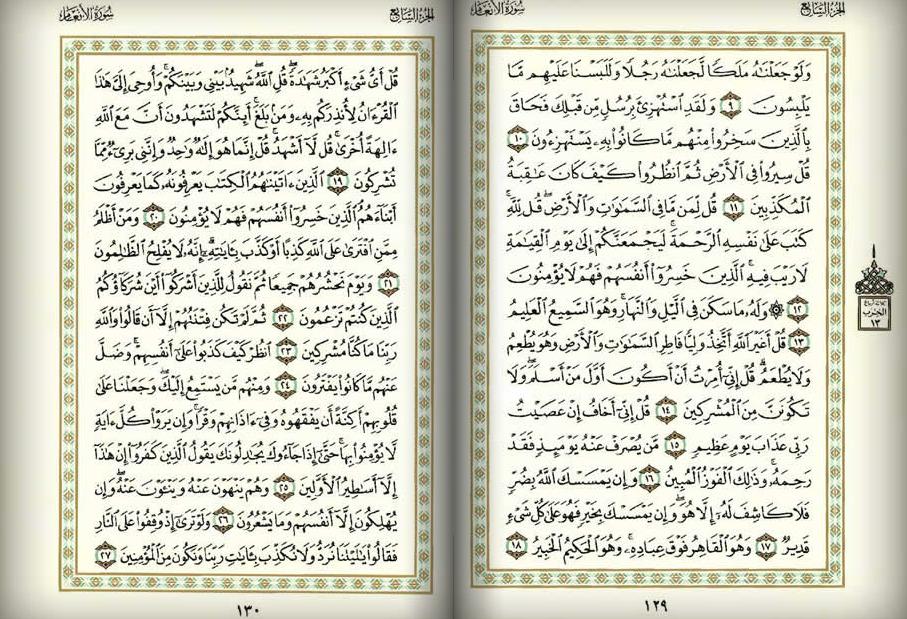 الجزء السابع
سورة الأنعام
وَلَوْ جَعَلْنَٰهُ مَلَكًا لَّجَعَلْنَٰهُ رَجُلًا وَلَلَبَسْنَا عَلَيْهِم مَّا
يَلْبِسُونَ ٩ وَلَقَدِ ٱسْتُهْزِئَ بِرُسُلٍ مِّن قَبْلِكَ فَحَاقَ
بِٱلَّذِينَ سَخِرُوا۟ مِنْهُم مَّا كَانُوا۟ بِهِۦ يَسْتَهْزِءُونَ ١٠
قُلْ سِيرُوا۟ فِى ٱلْأَرْضِ ثُمَّ ٱنظُرُوا۟ كَيْفَ كَانَ عَٰقِبَةُ
ٱلْمُكَذِّبِينَ ١١ قُل لِّمَن مَّا فِى ٱلسَّمَٰوَٰتِ وَٱلْأَرْضِ ۖ قُل لِّلَّهِ ۚ
كَتَبَ عَلَىٰ نَفْسِهِ ٱلرَّحْمَةَ ۚ لَيَجْمَعَنَّكُمْ إِلَىٰ يَوْمِ ٱلْقِيَٰمَةِ
لَا رَيْبَ فِيهِ ۚ ٱلَّذِينَ خَسِرُوٓا۟ أَنفُسَهُمْ فَهُمْ لَا يُؤْمِنُونَ
١٢ ۞ وَلَهُۥ مَا سَكَنَ فِى ٱلَّيْلِ وَٱلنَّهَارِ ۚ وَهُوَ ٱلسَّمِيعُ ٱلْعَلِيمُ
١٣ قُلْ أَغَيْرَ ٱللَّهِ أَتَّخِذُ وَلِيًّا فَاطِرِ ٱلسَّمَٰوَٰتِ وَٱلْأَرْضِ وَهُوَ يُطْعِمُ
وَلَا يُطْعَمُ ۗ قُلْ إِنِّىٓ أُمِرْتُ أَنْ أَكُونَ أَوَّلَ مَنْ أَسْلَمَ ۖ وَلَا
تَكُونَنَّ مِنَ ٱلْمُشْرِكِينَ ١٤ قُلْ إِنِّىٓ أَخَافُ إِنْ عَصَيْتُ
رَبِّى عَذَابَ يَوْمٍ عَظِيمٍ ١٥ مَّن يُصْرَفْ عَنْهُ يَوْمَئِذٍ فَقَدْ
رَحِمَهُۥ ۚ وَذَٰلِكَ ٱلْفَوْزُ ٱلْمُبِينُ ١٦ وَإِن يَمْسَسْكَ ٱللَّهُ بِضُرٍّ
فَلَا كَاشِفَ لَهُۥٓ إِلَّا هُوَ ۖ وَإِن يَمْسَسْكَ بِخَيْرٍ فَهُوَ عَلَىٰ كُلِّ شَىْءٍ
قَدِيرٌ ١٧ وَهُوَ ٱلْقَاهِرُ فَوْقَ عِبَادِهِۦ ۚ وَهُوَ ٱلْحَكِيمُ ٱلْخَبِيرُ ١٨
١٢٩
الحزب
١٣
الجزء السابع
سورة الأنعام
قُلْ أَىُّ شَىْءٍ أَكْبَرُ شَهَٰدَةً ۖ قُلِ ٱللَّهُ ۖ شَهِيدٌۢ بَيْنِى وَبَيْنَكُمْ ۚ وَأُوحِىَ إِلَىَّ هَٰذَا
ٱلْقُرْءَانُ لِأُنذِرَكُم بِهِۦ وَمَنۢ بَلَغَ ۚ أَئِنَّكُمْ لَتَشْهَدُونَ أَنَّ مَعَ ٱللَّهِ
ءَالِهَةً أُخْرَىٰ ۚ قُل لَّآ أَشْهَدُ ۚ قُلْ إِنَّمَا هُوَ إِلَٰهٌ وَٰحِدٌ وَإِنَّنِى بَرِىٓءٌ مِّمَّا
تُشْرِكُونَ ١٩ ٱلَّذِينَ ءَاتَيْنَٰهُمُ ٱلْكِتَٰبَ يَعْرِفُونَهُۥ كَمَا يَعْرِفُونَ
أَبْنَآءَهُمُ ۘ ٱلَّذِينَ خَسِرُوٓا۟ أَنفُسَهُمْ فَهُمْ لَا يُؤْمِنُونَ ٢٠ وَمَنْ أَظْلَمُ
مِمَّنِ ٱفْتَرَىٰ عَلَى ٱللَّهِ كَذِبًا أَوْ كَذَّبَ بِـَٔايَٰتِهِۦٓ ۗ إِنَّهُۥ لَا يُفْلِحُ ٱلظَّٰلِمُونَ
٢١ وَيَوْمَ نَحْشُرُهُمْ جَمِيعًا ثُمَّ نَقُولُ لِلَّذِينَ أَشْرَكُوٓا۟ أَيْنَ شُرَكَآؤُكُمُ
ٱلَّذِينَ كُنتُمْ تَزْعُمُونَ ٢٢ ثُمَّ لَمْ تَكُن فِتْنَتُهُمْ إِلَّآ أَن قَالُوا۟ وَٱللَّهِ
رَبِّنَا مَا كُنَّا مُشْرِكِينَ ٢٣ ٱنظُرْ كَيْفَ كَذَبُوا۟ عَلَىٰٓ أَنفُسِهِمْ ۚ وَضَلَّ
عَنْهُم مَّا كَانُوا۟ يَفْتَرُونَ ٢٤ وَمِنْهُم مَّن يَسْتَمِعُ إِلَيْكَ ۖ وَجَعَلْنَا عَلَىٰ
قُلُوبِهِمْ أَكِنَّةً أَن يَفْقَهُوهُ وَفِىٓ ءَاذَانِهِمْ وَقْرًا ۚ وَإِن يَرَوْا۟ كُلَّ ءَايَةٍ
لَّا يُؤْمِنُوا۟ بِهَا ۚ حَتَّىٰٓ إِذَا جَآءُوكَ يُجَٰدِلُونَكَ يَقُولُ ٱلَّذِينَ كَفَرُوٓا۟ إِنْ هَٰذَآ
إِلَّآ أَسَٰطِيرُ ٱلْأَوَّلِينَ ٢٥ وَهُمْ يَنْهَوْنَ عَنْهُ وَيَنْـَٔوْنَ عَنْهُ ۖ وَإِن
يُهْلِكُونَ إِلَّآ أَنفُسَهُمْ وَمَا يَشْعُرُونَ ٢٦ وَلَوْ تَرَىٰٓ إِذْ وُقِفُوا۟ عَلَى ٱلنَّارِ
فَقَالُوا۟ يَٰلَيْتَنَا نُرَدُّ وَلَا نُكَذِّبَ بِـَٔايَٰتِ رَبِّنَا وَنَكُونَ مِنَ ٱلْمُؤْمِنِينَ ٢٧
١٣٠